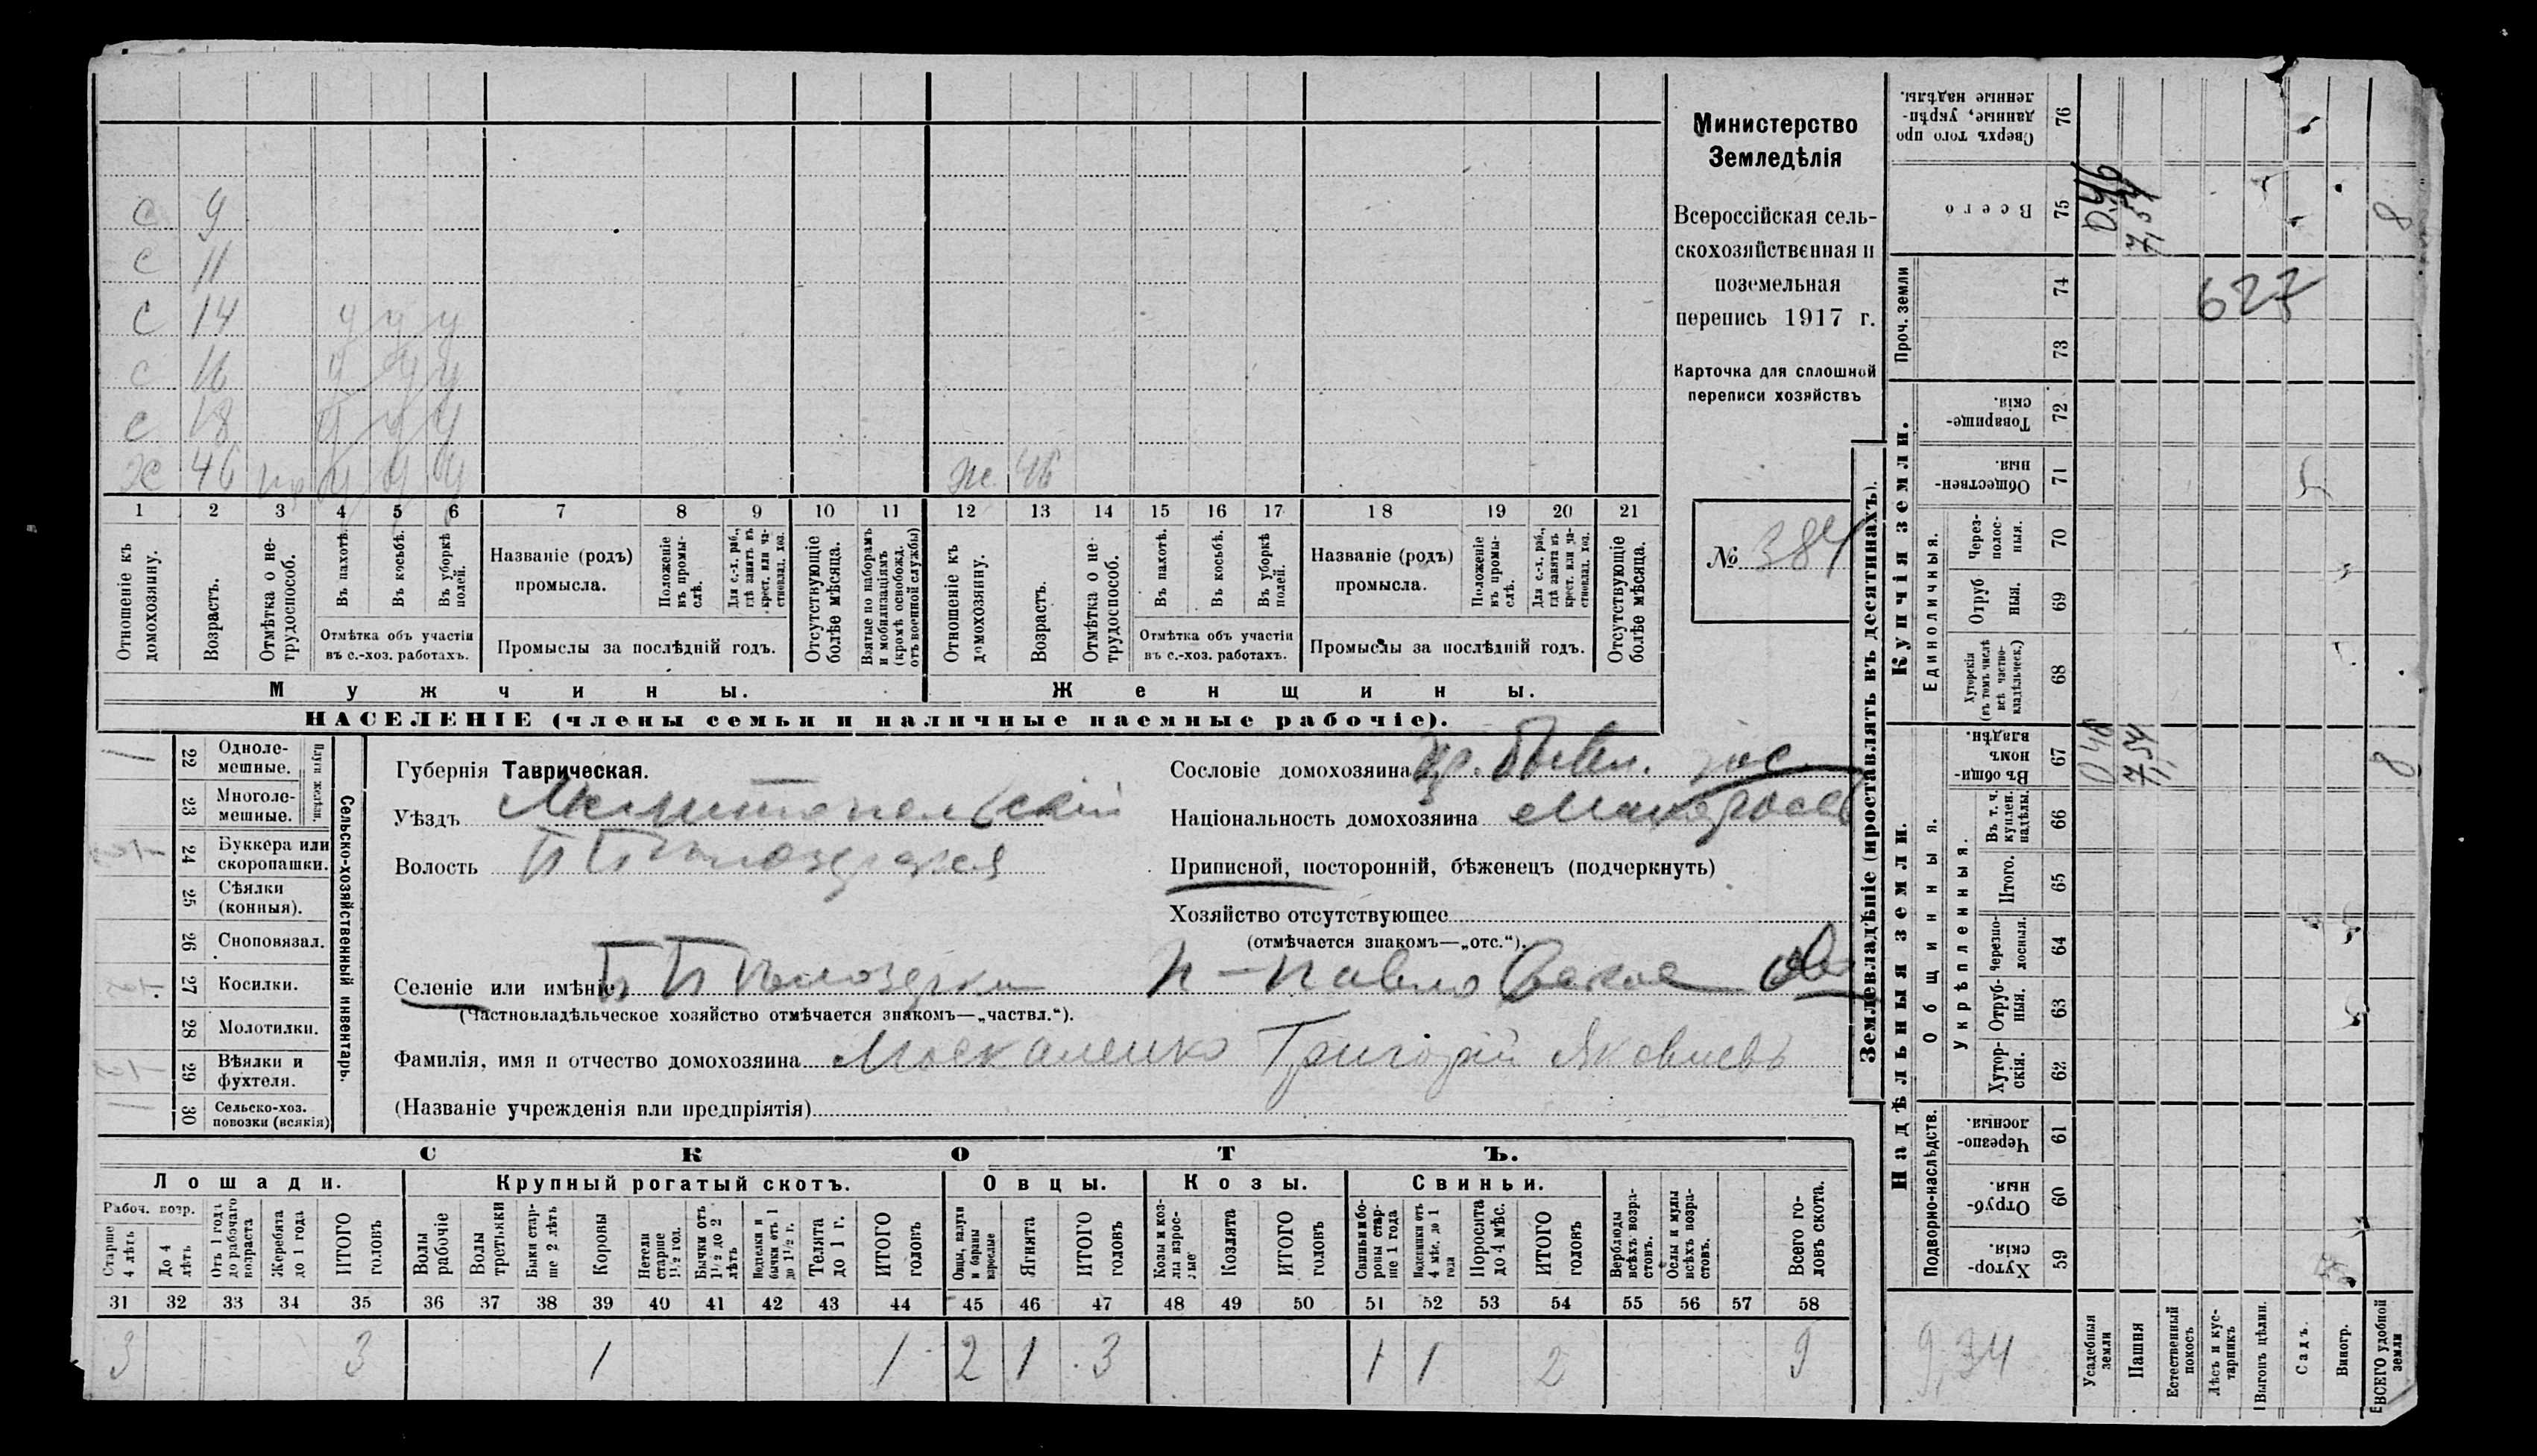 с 9
с 11
с 14 у у у
с 16 у у у
с 18 у у у
х 46 у у у ж. 46
1 2 3 4 5 6 7 8 9 10 11 12 13 14 15 16 17 18 19 20 21
Отношеніе къ домохозяину.
Возрастъ.
Отмѣтка о нетрудоспособ.
Въ пахотѣ.
Въ косьбѣ.
Въ уборкѣ полей.
Отмѣтка объ участіи въ с.-хоз. работахъ.
Названіе (родъ) промысла.
Положеніе въ промыслѣ.
Для с.-х. раб., гдѣ занятъ въ крест. или частновлад. хоз.
Промыслы за послѣдній годъ.
Отсутствующіе болѣе мѣсяца.
Взятые по наборамъ и мобилизаціямъ (кромѣ освобожд. отъ военной службы)
Отношеніе къ домохозяину.
Возрастъ.
Отмѣтка о нетрудоспособ.
Въ пахотѣ.
Въ косьбѣ.
Въ уборкѣ полей.
Отмѣтка объ участіи въ с.-хоз. работахъ.
Названіе (родъ) промысла.
Положеніе въ промыслѣ.
Для с.-х. раб., гдѣ занята въ крест. или частновлад. хоз.
Промыслы за послѣдній годъ.
Отсутствующіе болѣе мѣсяца.
Мужчины.
Женщины.
НАСЕЛЕНІЕ (члены семьи и наличные наемные рабочіе).
Министерство
Земледѣлія
Всероссійская сель-
скохозяйственная и
поземельная
перепись 1917 г.
Карточка для сплошной
переписи хозяйствъ
№ 384
Сельско-хозяйственный инвентарь.
Плуги желѣзн.
22 Однолемешные. 1
23 Многолемешные.
24 Буккера или скоропашки.
25 Сѣялки (конныя).
26 Сноповязал.
27 Косилки.
28 Молотилки.
29 Вѣялки и фухтеля.
30 Сельско-хоз. повозки (всякія) 1
Губернія Таврическая.
Уѣздъ Мелитопельскій
Волость П Бѣлозерская
Селеніе или имѣніе П Бѣлозерки П-Павловское
(Частновладѣльческое хозяйство отмѣчается знакомъ—„частвл.“).
Фамилія, имя и отчество домохозяина Москаленко Григорій Яковлевъ
(Названіе учрежденія или предпріятія)
Сословіе домохозяина кр. бывш. гос.
Національность домохозяина малоросс
Приписной, посторонній, бѣженецъ (подчеркнуть)
Хозяйство отсутствующее
(отмѣчается знакомъ—„отс.“).
СКОТЪ.
Лошади. Крупный рогатый скотъ. Овцы. Козы. Свиньи.
Рабоч. возр.
Старше 4 лѣтъ
До 4 лѣтъ
Отъ 1 года до рабочаго возраста
Жеребята до 1 года
ИТОГО головъ
Волы рабочіе
Волы третьяки
Быки старше 2 лѣтъ
Коровы
Нетели старше 1½ год.
Бычки отъ 1½ до 2 лѣтъ
Подтелки и бычки отъ 1 до 1½ г.
Телята до 1 г.
ИТОГО головъ
Овцы, валухи и бараны взрослые
Ягнята
ИТОГО головъ
Козы и козлы взрослые
Козлята
ИТОГО головъ
Свиньи и боровы старше 1 года
Подсвинки отъ 4 мѣс. до 1 года
Поросята до 4 мѣс.
ИТОГО головъ
Верблюды всѣхъ возрастовъ.
Ослы и мулы всѣхъ возрастовъ.
Всего головъ скота.
31 32 33 34 35 36 37 38 39 40 41 42 43 44 45 46 47 48 49 50 51 52 53 54 55 56 57 58
3 3 1 1 2 1 3 1 1 2 9
Землевладѣніе (проставлять въ десятинахъ).
Надѣльныя земли.
Купчія земли.
Проч. земли
Подворно-наслѣдств.
Общинныя.
Укрѣпленныя.
Единоличныя.
Сверхъ того проданные, укрѣпленные надѣлы. 76
Всего 75 0,46 7,54 8
74 627
73
Товарищескія. 72
Общественныя. 71
Черезполосныя. 70
Отрубныя. 69
Хуторскія (въ томъ числѣ всѣ частновладѣльческ.) 68
Въ общинномъ владѣн. 67 0,46 7,54 8
Въ т. ч. куплен. надѣлы. 66
Итого. 65
Черезполосныя. 64
Отрубныя. 63
Хуторскія. 62
Черезполосныя. 61
Отрубныя. 60
Хуторскія. 59
9,34
Усадебныя земли
Пашня
Естественный покосъ
Лѣсъ и кустарникъ
Выгонъ цѣлин.
Садъ.
Виногр.
ВСЕГО удобной земли